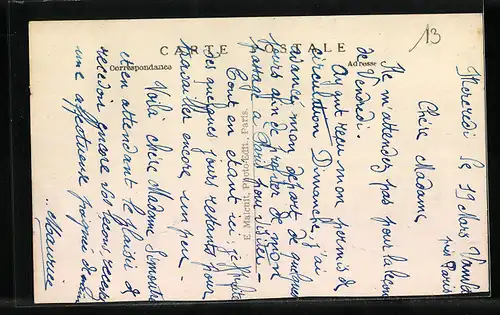 CARTE POSTALE
Correspondance
Adresse
E. Malcuit, Photo-Edit., Paris.
13
Mercredi le 19 Mars
près Paris
Chère Madame
Ne m'attendez pas pour la leçon
de Vendredi.
Ayant reçu mon permis de
circulation Dimanche, j'ai
avancé mon départ de quelques
jours afin de profiter de mon
passage à Paris pour visiter
Tout en étant ici, je profite
des quelques jours restant pour
travailler encore un peu
Voilà chère Madame
et en attendant le plaisir de
recevoir encore vos leçons, recevez
une affectueuse poignée de main
Maurice